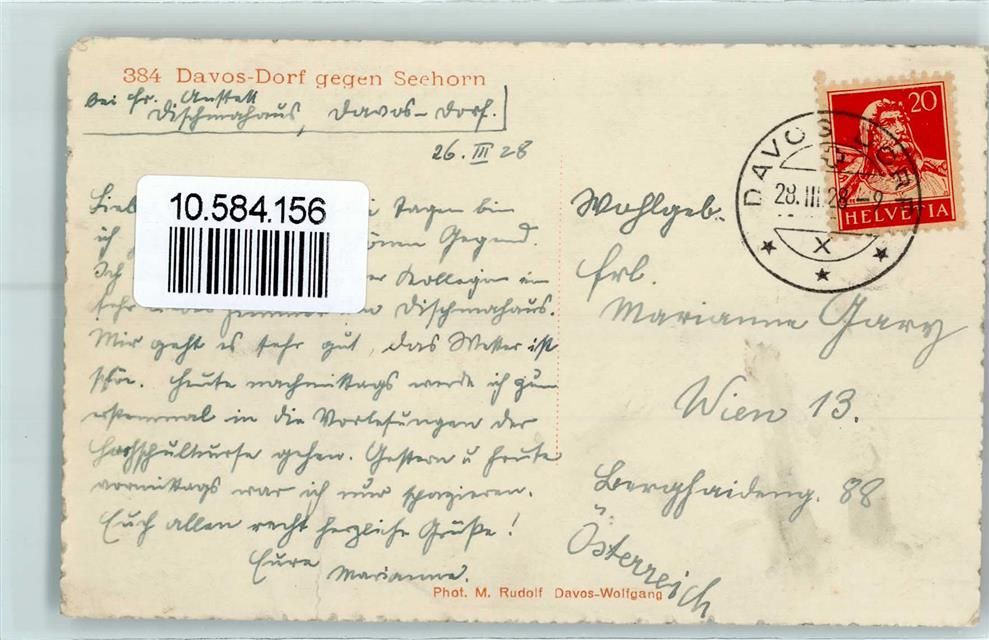 384 Davos-Dorf gegen Seehorn
bei Fr. Anstett
Dischmahaus, Davos-Dorf.
26. III 28
10.584.156
Lieb
Tagen bin
ich
Gegend.
Ich
Kollegin im
sehr
Dischmahaus.
Mir geht es sehr gut, das Wetter ist
schön. Heute nachmittags werde ich zum
erstenmal in die Vorlesungen der
Hochschulkurse gehen. Gestern u heute
vormittags war ich nur spazieren.
Euch allen recht herzliche Grüße!
Eure
Marianne.
Phot. M. Rudolf Davos-Wolfgang
20
HELVETIA
DAVOS DORF
28.III.28.-9
X
Wohlgeb.
Frl.
Marianne Gary
Wien 13.
88
Österreich